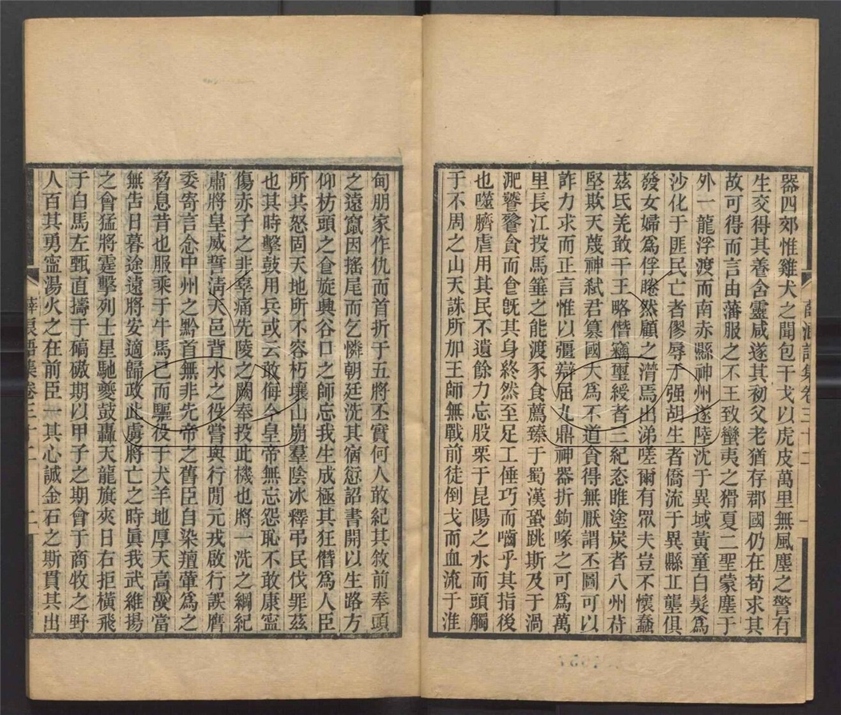 器四郊惟雞犬之聞包干戈以虎皮萬里無風塵之警有
生交得其養含靈咸遂其初父老猶存郡國仍在苟求其
故可得而言由藩服之不王致蠻夷之猾夏二聖蒙塵于
外一龍浮渡而南赤縣神州遂陸沈于異域黃童白髮爲
沙化于匪民亡者僇辱于强胡生者僑流于異縣丘壟俱
發女婦爲俘睠然顧之潸焉出涕嗟爾有眾夫豈不懷蠢
茲氐羌敢干王略僭竊璽綬者三紀恣睢塗炭者八州苻
堅欺天蔑神弒君篡國大爲不道貪得無厭謂丕圖可以
詐力求而正言惟以彊辯屈九鼎神器折鉤喙之可爲萬
里長江投馬箠之能渡豕食薦臻于蜀漢蛩跳斯及于渦
淝饕餮食而倉旣其身終然至足工倕巧而嚙乎其指後
也噬臍虐用其民不遺餘力忘股栗于昆陽之水而頭觸
于不周之山天誅所加王師無戰前徒倒戈而血流于淮
薛浪語集卷三十二
一
甸朋家作仇而首折于五將丕實何人敢紀其敘前奉頭
之遠竄因搖尾而乞憐朝廷洗其宿愆詔書開以生路方
仰枋頭之倉旋興谷口之師忘我生成極其狂僭爲人臣
所共怒固天地所不容朽壤山崩羣陰冰釋弔民伐罪茲
也其時擊鼓用兵或云敢侮今皇帝無忘怨恥不敢康寍
傷赤子之非辜痛先陵之闕奉投此機也將一洗之綱紀
肅將皇威誓清天邑背水之役嘗與行閒元戎啟行誤膺
委寄言念中州之黔首無非先帝之舊臣自染羶葷爲之
脅息昔也服乘于牛馬已而驅役于犬羊地厚天高憂當
無吿日暮途遠將安適歸政此虜將亡之時眞我武維揚
之會猛將霆擊列士星馳夔鼓轟天龍旗夾日右拒橫飛
于白馬左甄直擣于碻磝期以甲子之期會于商牧之野
人百其勇寍湯火之在前臣一其心誠金石之斯貫其出
薛浪語集卷三十二
二